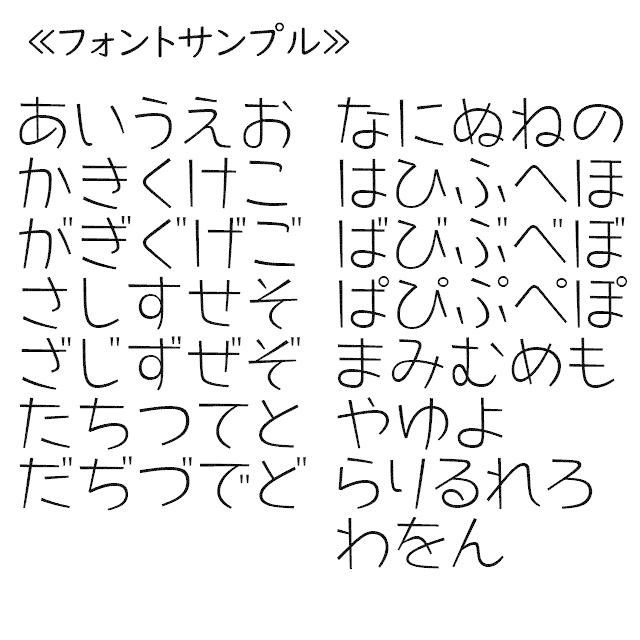 ≪フォントサンプル≫
あいうえお
かきくけこ
がぎぐげご
さしすせそ
ざじずぜぞ
たちつてと
だぢづでど
なにぬねの
はひふへほ
ばびぶべぼ
ぱぴぷぺぽ
まみむめも
やゆよ
らりるれろ
わをん